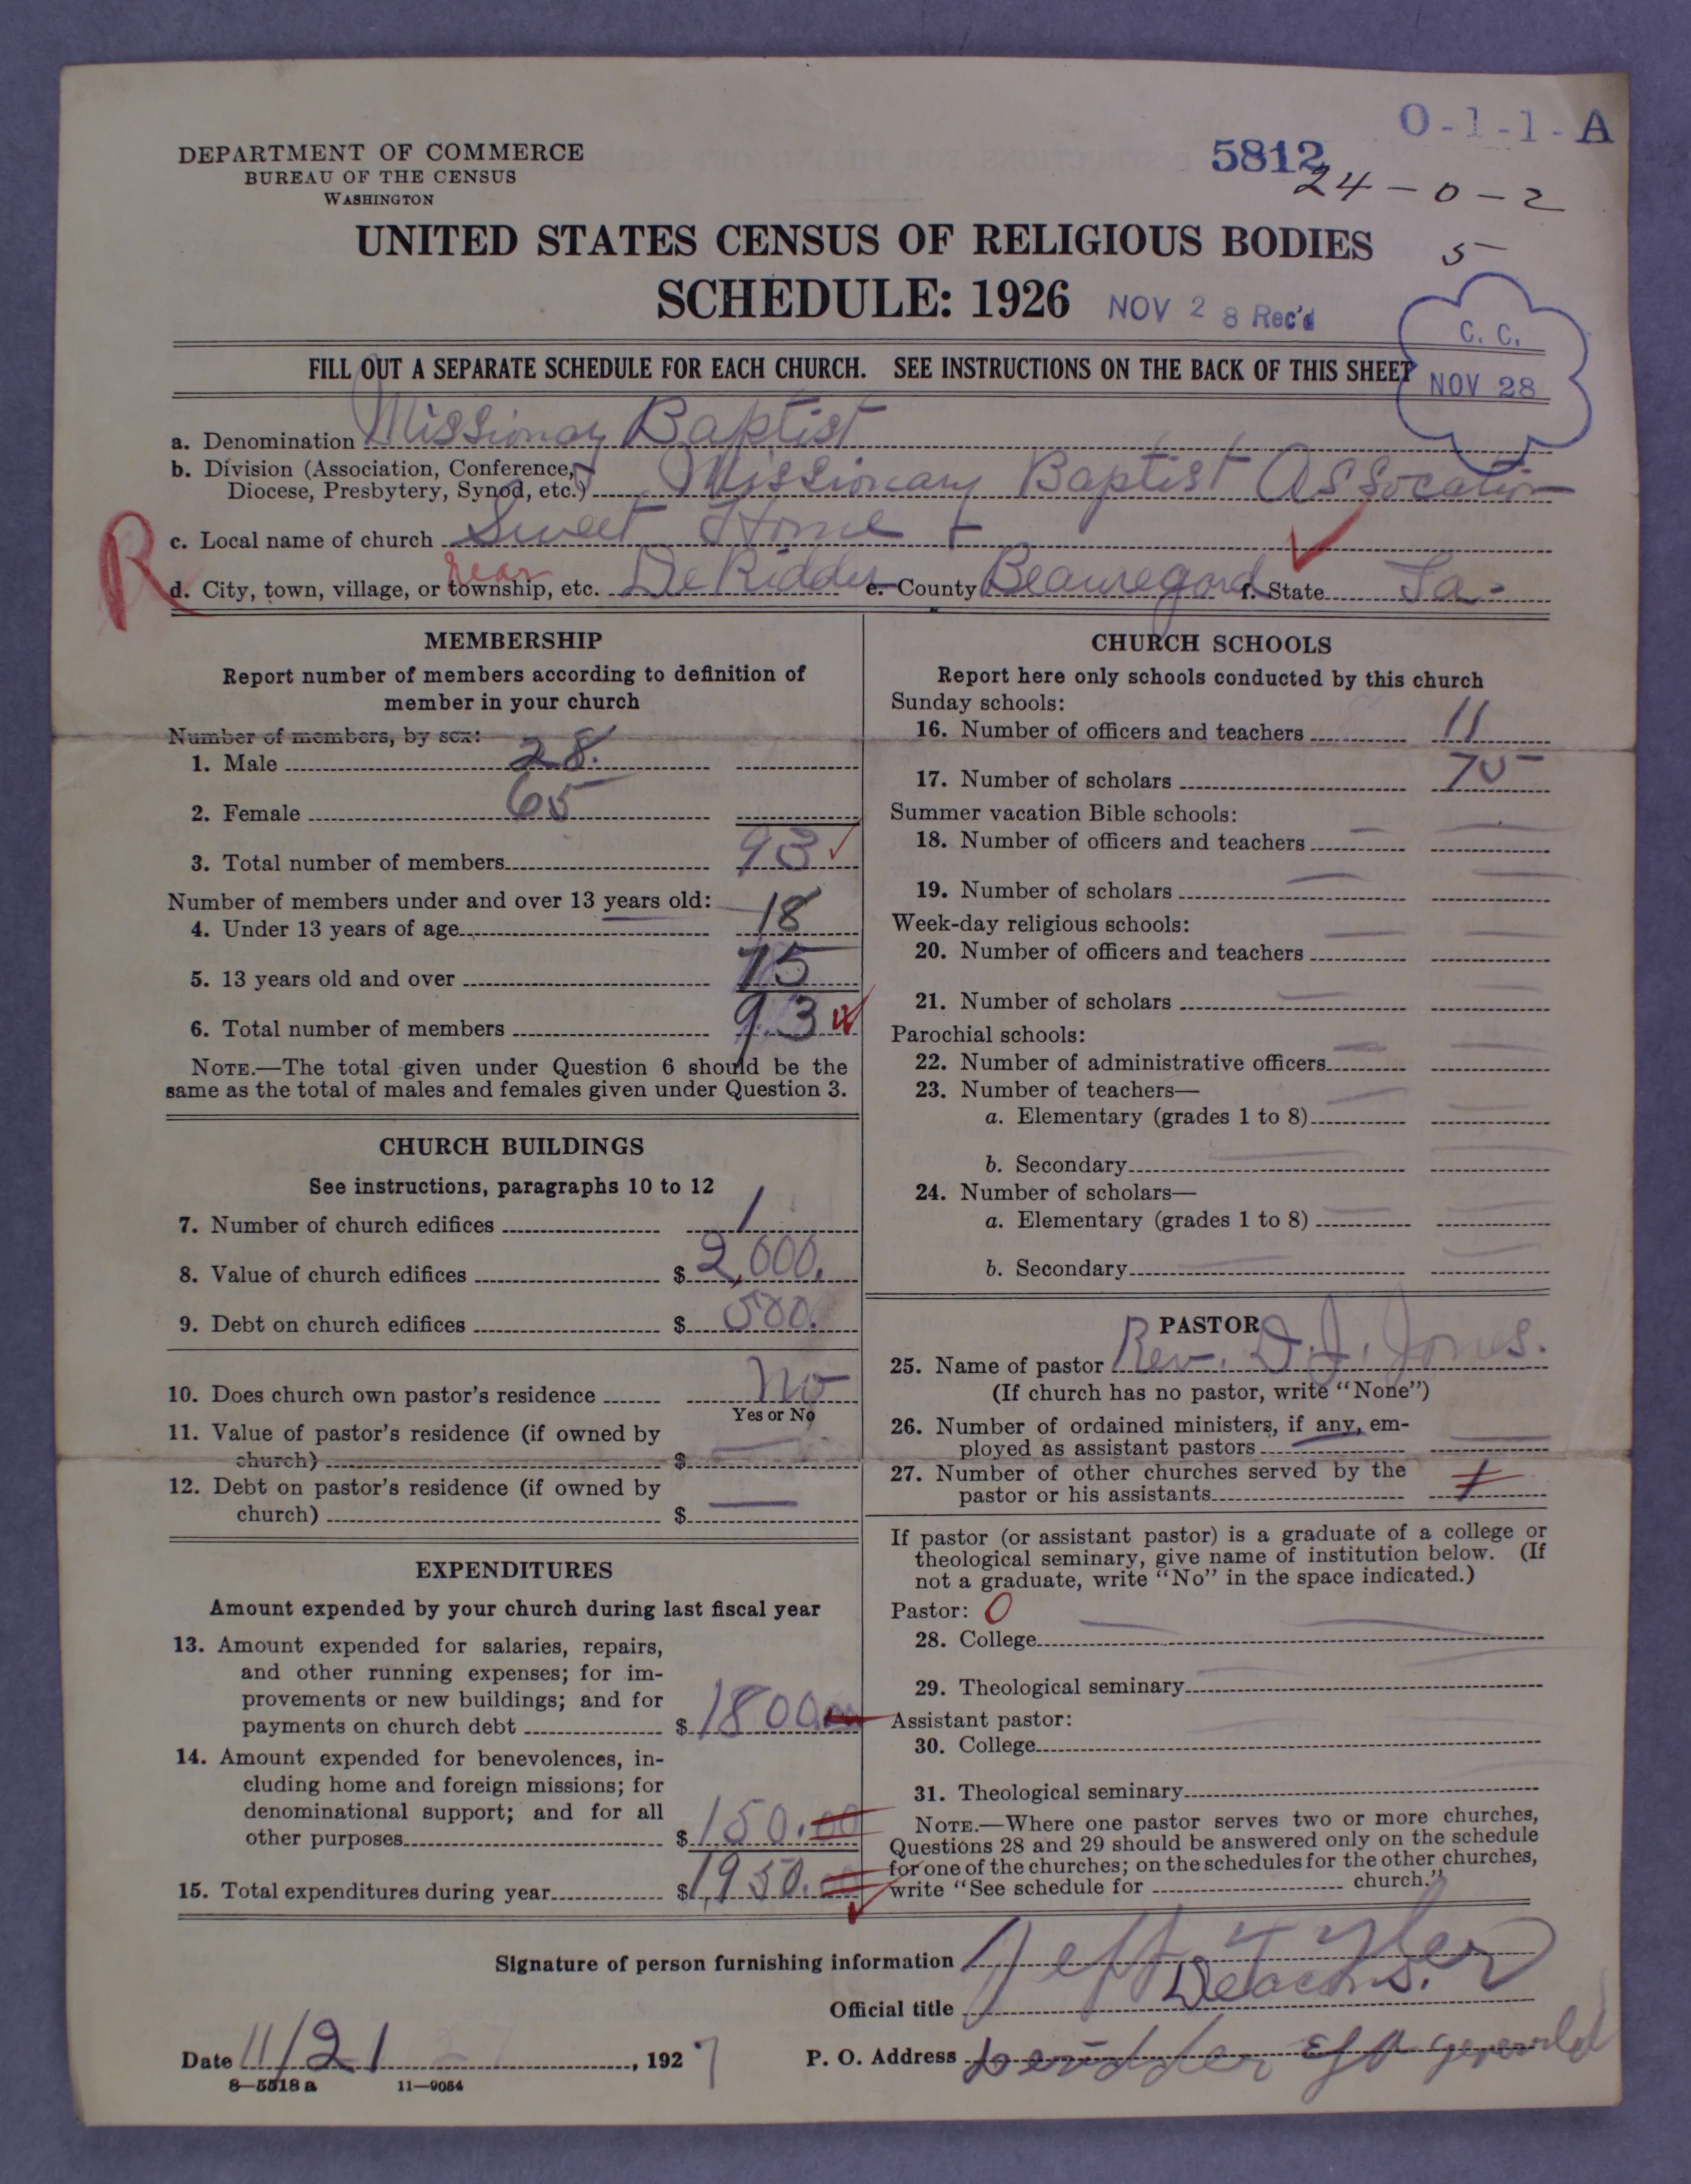 O-1-1-A
DEPARTMENT OF COMMERCE
BUREAU OF THE CENSUS
WASHINGTON
5812
24-0-2
5
UNITED STATES CENSUS OF RELIGIOUS BODIES
SCHEDULE: 1926
NOV 28 Rec'd
C. C.
NOV 28
FILL OUT A SEPARATE SCHEDULE FOR EACH CHURCH. SEE INSTRUCTIONS ON THE BACK OF THIS SHEET
a. Denomination Missionary Baptist
b. Division (Association, Conference,
Diocese, Presbytery, Synod, etc.) Missionary Baptist Assocation
R
c. Local name of church Sweet Home
near
d. City, town, village, or township, etc. DeRidder e. County Beauregard f. State La.
MEMBERSHIP
Report number of members according to definition of
member in your church
Number of members, by sex:
1. Male 28.
2. Female 65
3. Total number of members 93
Number of members under and over 13 years old:
4. Under 13 years of age 18
5. 13 years old and over 75
6. Total number of members 93
NOTE.—The total given under Question 6 should be the
same as the total of males and females given under Question 3.
CHURCH BUILDINGS
See instructions, paragraphs 10 to 12
7. Number of church edifices 1
8. Value of church edifices $ 2,000.
9. Debt on church edifices $ 500.
10. Does church own pastor's residence No
Yes or No
11. Value of pastor's residence (if owned by
church) $
12. Debt on pastor's residence (if owned by
church) $
EXPENDITURES
Amount expended by your church during last fiscal year
13. Amount expended for salaries, repairs,
and other running expenses; for im-
provements or new buildings; and for
payments on church debt $ 1800.00
14. Amount expended for benevolences, in-
cluding home and foreign missions; for
denominational support; and for all
other purposes $ 150.00
15. Total expenditures during year $ 1,950.00
CHURCH SCHOOLS
Report here only schools conducted by this church
Sunday schools:
16. Number of officers and teachers 11
17. Number of scholars 75
Summer vacation Bible schools:
18. Number of officers and teachers
19. Number of scholars
Week-day religious schools:
20. Number of officers and teachers
21. Number of scholars
Parochial schools:
22. Number of administrative officers
23. Number of teachers—
a. Elementary (grades 1 to 8)
b. Secondary
24. Number of scholars—
a. Elementary (grades 1 to 8)
b. Secondary
PASTOR
25. Name of pastor Rev. D. J. Jones.
(If church has no pastor, write "None")
26. Number of ordained ministers, if any, em-
ployed as assistant pastors
27. Number of other churches served by the
pastor or his assistants 1
If pastor (or assistant pastor) is a graduate of a college or
theological seminary, give name of institution below. (If
not a graduate, write "No" in the space indicated.)
Pastor: 0
28. College
29. Theological seminary
Assistant pastor:
30. College
31. Theological seminary
NOTE.—Where one pastor serves two or more churches,
Questions 28 and 29 should be answered only on the schedule
for one of the churches; on the schedules for the other churches,
write "See schedule for church."
Signature of person furnishing information Jeff Tyler
Official title Deacons.
Date 11/21, 1927
P. O. Address Deridder
8-5518 a 11-9054